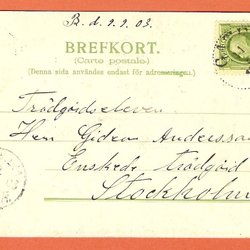 B. d. 9.9 03.
BREFKORT.
(Carte postale.)
(Denna sida användes endast för adresseringen.)
Trädgårdseleven
Herr Gideon Andersson
Enskede trädgård
Stockholm